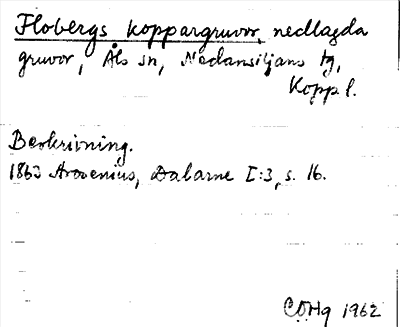 Flobergs koppargruvor, nedlagda
gruvor, Åls sn, Nedansiljans tg,
Kopp l.
Beskrivning.
1863 Arosenius, Dalarne I:3, s. 16.
COHg 1962